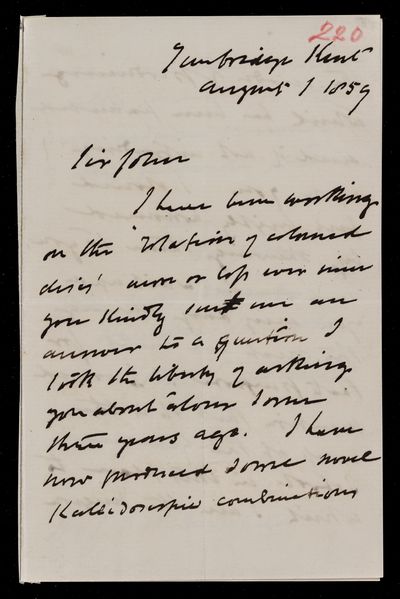 220
Tunbridge Kent
August 1 1859
Sir John
I have been working
on the "rotation of coloured
discs" more or less ever since
you kindly sent me an
answer to a question I
took the liberty of asking
you about colour some
three years ago. I have
now produced some novel
Kaleidoscopic combinations